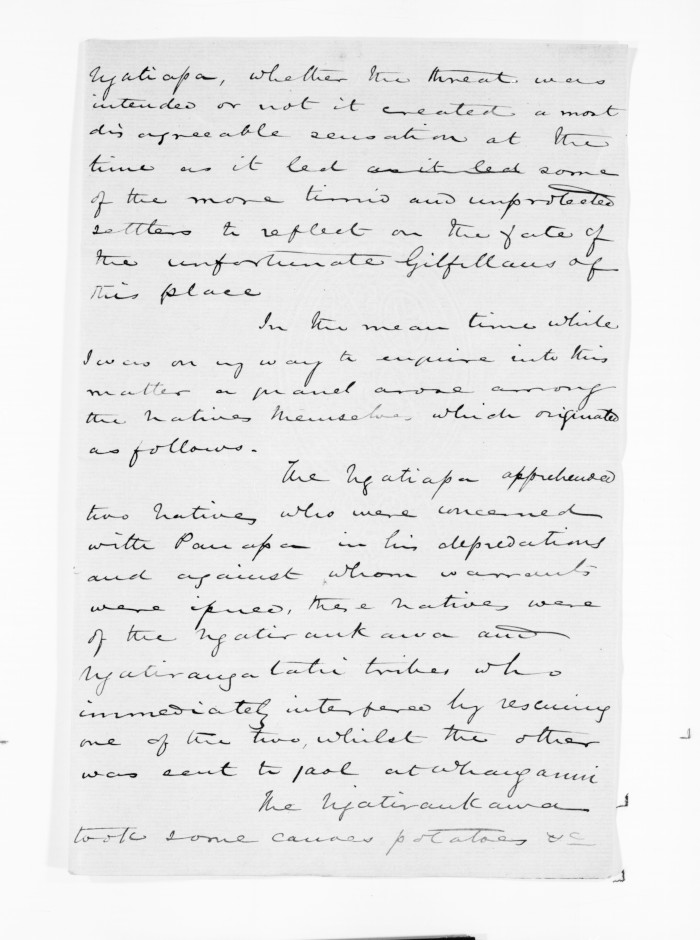 Ngatiapa, whether the threat was
intended or not it created a most
disagreeable sensation at the
time as it led as it led some
of the more timid and unprotected
settlers to reflect on the fate of
the unfortunate Gilfillans of
this place
In the mean time while
I was on my way to enquire into this
matter a quarrel arose among
the Natives themselves which originated
as follows.
The Ngatiapa apprehended
two Natives who were concerned
with Panapa in his depredations
and against whom warrants
were issued, these natives were
of the Ngatiraukawa and
Ngatirangatahi tribes who
immediately interfered by rescuing
one of the two, whilst the other
was sent to jaol at Whanganui
The Ngatiraukawa
took some canoes potatoes &c